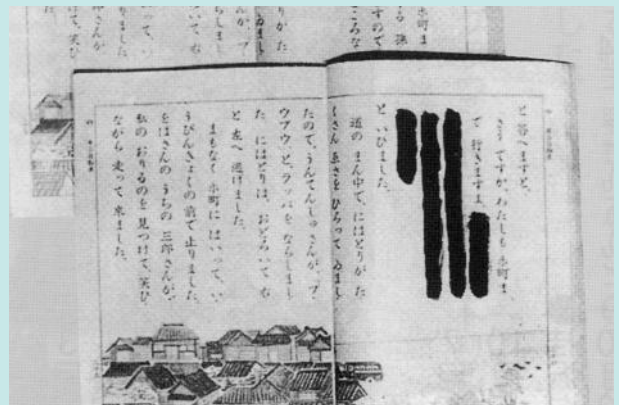 本町ま
すので
ころな
りが た
ゐまし
が、ブ
しまし
いて 右
って、い
ました。
郎さんが
けて、笑ひ
と 答へますと、
さうですか、わたしも 本町ま
で 行きますよ
と いひました。
道の まん中で、にはとりが た
くさん ゑさを ひろって ゐまし
たので、うんてんしゅさんが、ブ
ウブウ、と、ラッパを ならしまし
た。にはとりは、おどろいて 右
と 左へ 逃げました。
まもなく 本町に はいって、い
うびんきょくの 前で 止りました。
をばさんの うちの 三郎さんが、
私の おりるのを 見つけて、笑ひ
ながら 走って 来ました。